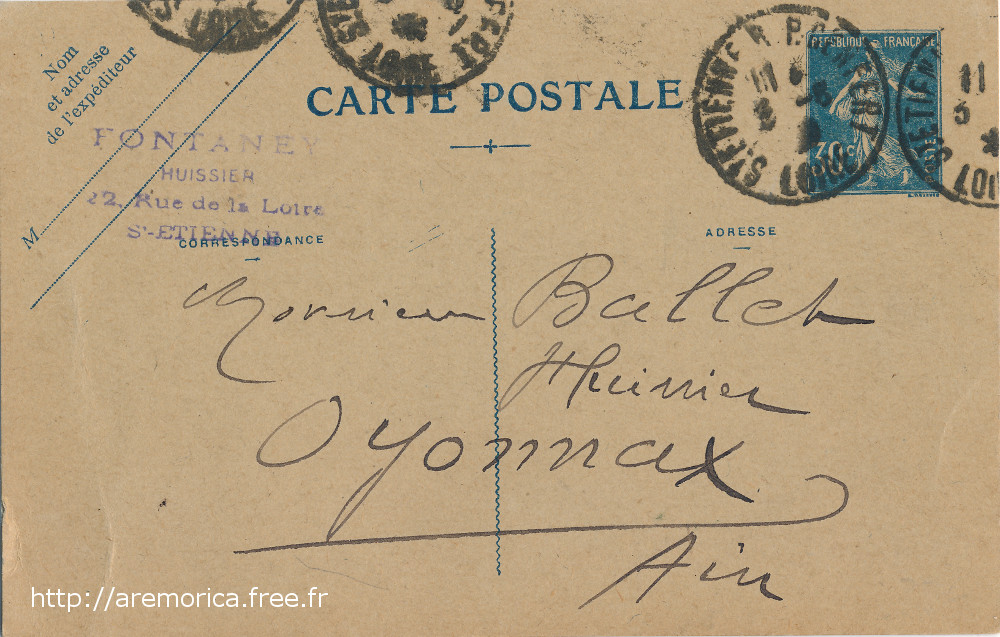 Nom
et adresse
de l'expéditeur
M
CARTE POSTALE
RÉPUBLIQUE FRANÇAISE
FONTANEY
HUISSIER
22, Rue de la Loire
St-ETIENNE
CORRESPONDANCE
ADRESSE
Monsieur Ballet
Huissier
Oyonnax
Ain
ST ETIENNE R.P.
LOIRE
ETIENNE
LOI
LOIRE
http://aremorica.free.fr